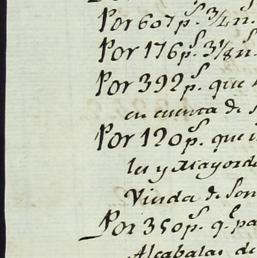 Por 607 p.s 3/4 rr.
Por 176 p.s 3 1/8 rr.
Por 392 p.s que
en cuenta de
Por 120 p.s que
les y Mayord
Viuda de
Por 350 p.s q.e pa
Alcabalas de